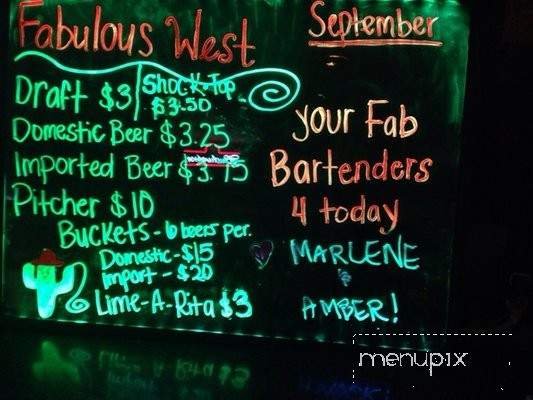 Fabulous West
Draft $3
Shock-Top
$3.50
Domestic Beer $3.25
Imported Beer $3.75
Pitcher $10
Buckets - 6 beers per.
Domestic - $15
Import - $20
Lime-A-Rita $3
September
your Fab
Bartenders
4 today
MARLENE
&
AMBER!
menupix